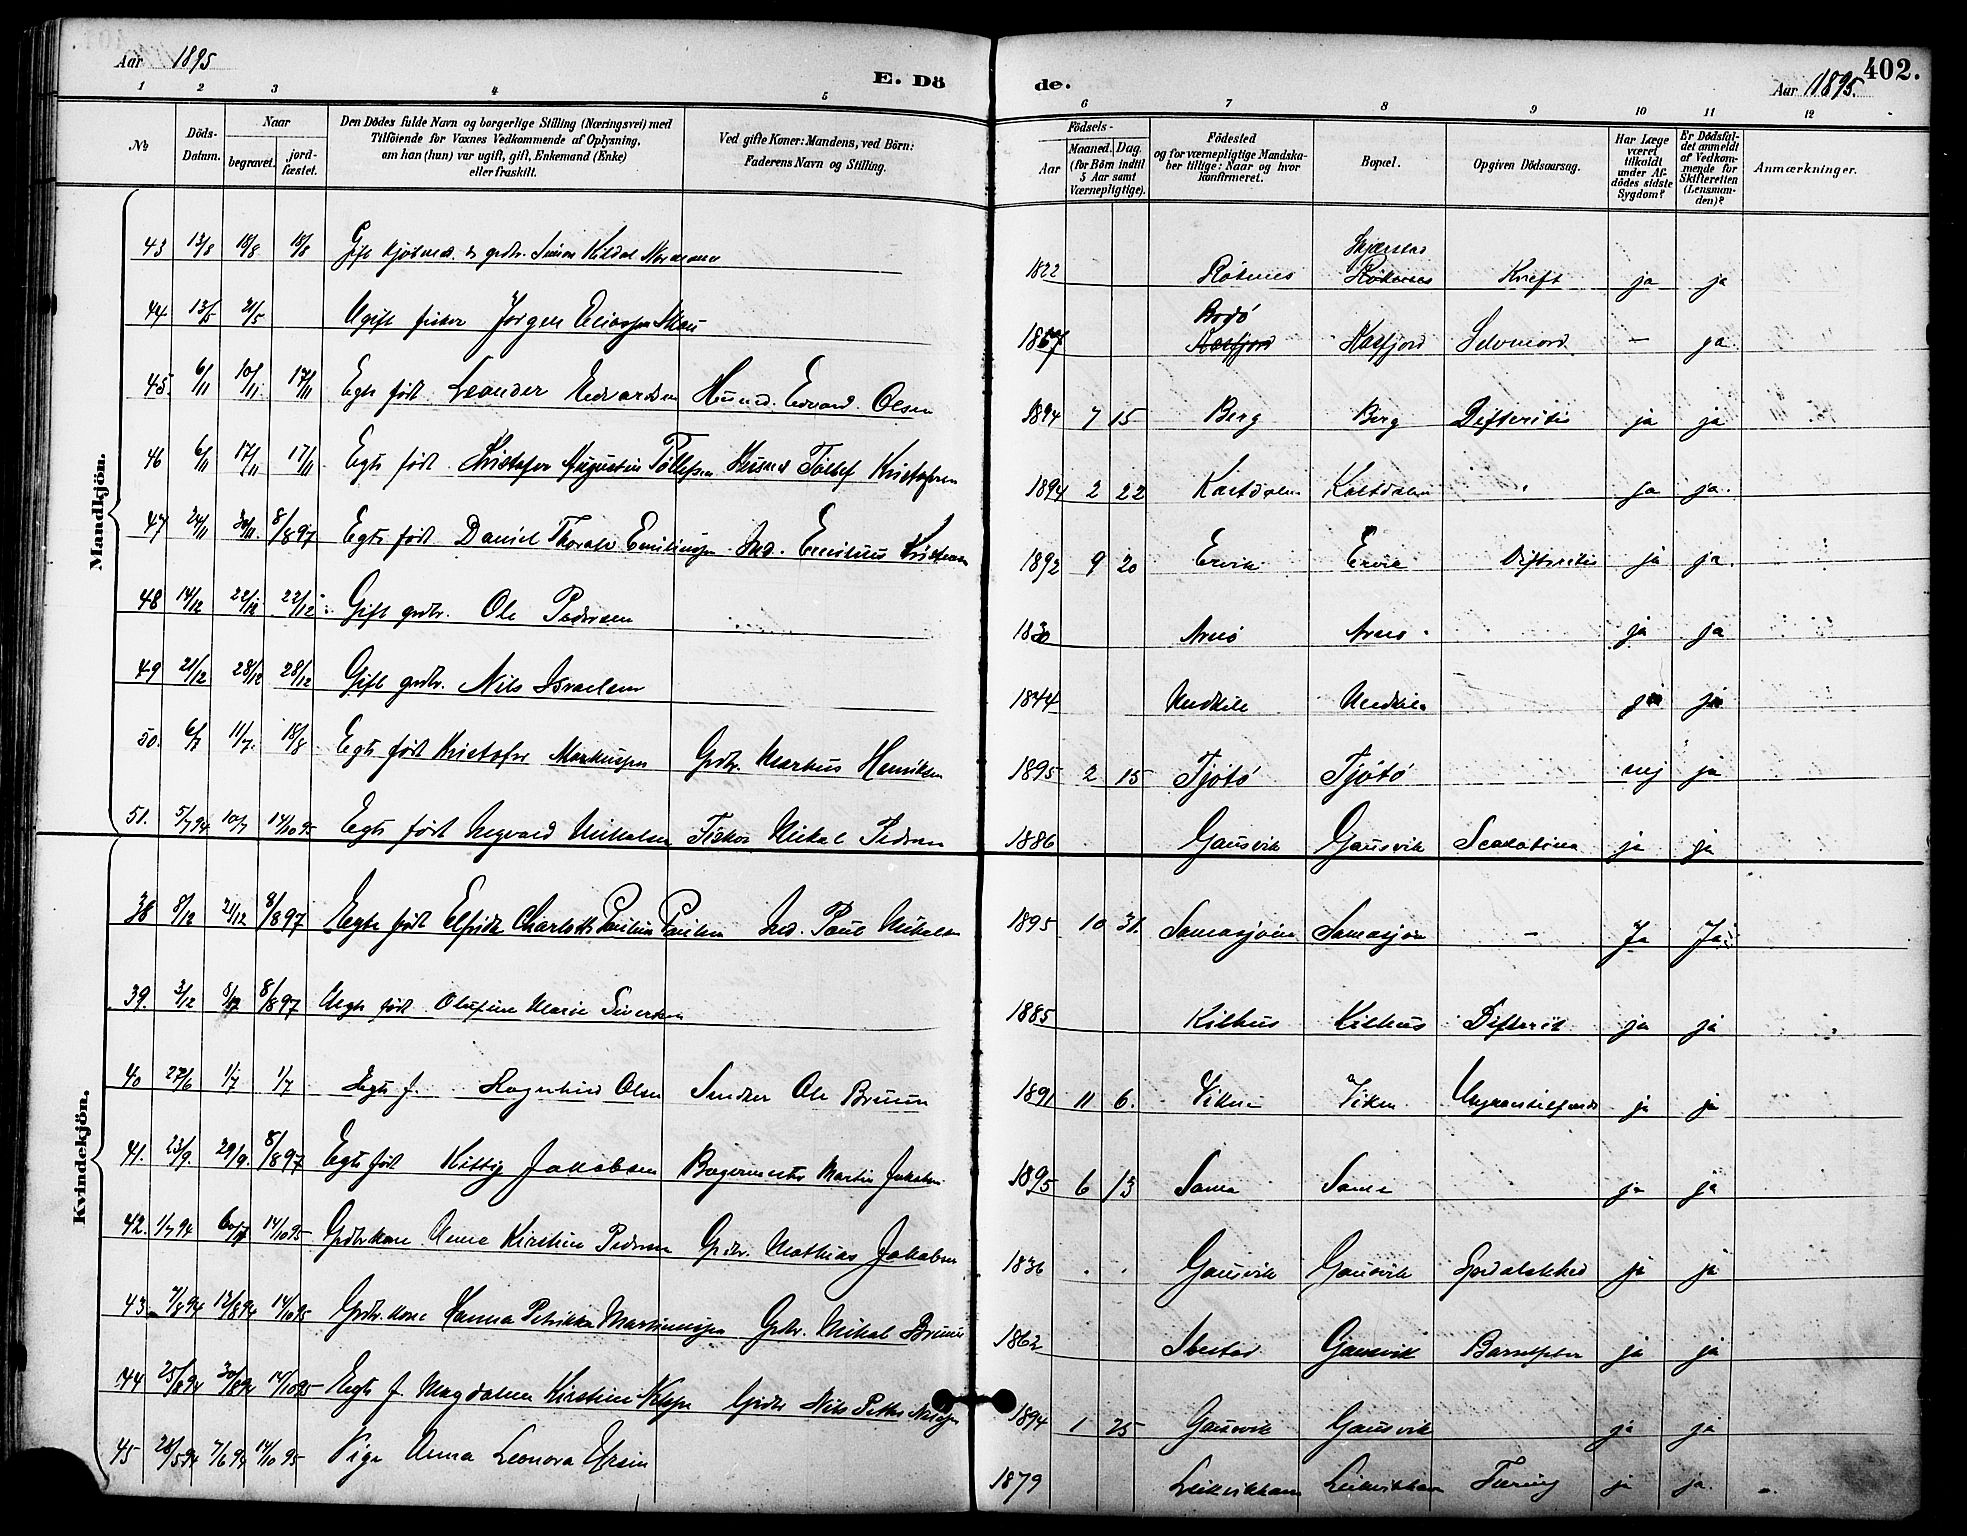 Aar 1895
E. Dö
de.
Aar 1895.
402.
1 2 3 4 5 6 7 8 9 10 11 12
No
Döds-Datum.
Naar
begravet.
jord-fæstet.
Den Dödes fulde Navn og borgerlige Stilling (Næringsvei) med
Tilföiende for Voxnes Vedkommende af Oplysning,
om han (hun) var ugift, gift, Enkemand (Enke)
eller fraskilt.
Ved gifte Koner: Mandens, ved Börn:
Faderens Navn og Stilling.
Födsels-
Aar
Maaned. Dag.
(for Börn indtil
5 Aar samt
Værnepligtige).
Födested
og for værnepligtige Mandska-
ber tillige: Naar og hvor
konfirmeret.
Bopæl.
Opgiven Dödsaarsag.
Har Læge
været
tilkaldt
under Af-
dödes sidste
Sygdom?
Er Dödsfal-
det anmeldt
af Vedkom-
mende for
Skifteretten
(Lensman-
den)?
Anmærkninger.
Mandkjön.
43 13/8 18/8 18/8 Gift grdbr. Simon Kildal 1822 Røkenes Røkenes Kreft ja ja
44 13/5 21/5 Ugift fisker Jørgen 1867 Bodø Kasfjord Kasfjord Selvmord - ja
45. 6/11 10/11. 17/11 Egte født Leander Edvardsen Husmd. Edvard Olsen 1894 7 15 Berg Berg Difteritis ja ja
46 6/11 17/11 17/11 Egte født Kristofer Augustin Tollefsen Husmd Tollef Kristofersen 1894 2 22 ja ja.
47 24/11 30/11. 8/8 97 Egte født Daniel Thoralv Emiliussen Ind. Emilius Kristensen 1892 9 20 Ervik Ervik Difteritis ja ja.
48 14/12 22/12 22/12 Gift grdbr. Ole Pedersen 1830 ja ja
49 21/12 28/12 28/12 Gift grdbr. Nils Israelsen 1844 ja ja
50. 11/7. 18/8 Egte født Kristofer Markussen Grdbr. Markus Henriksen 1895 2 15 Tjøtø Tjøtø nej ja
51. 5/7 94 10/7 14/10 95 Egte født Ingvald Mikalsen Fisker Mikal Pedersen 1886 Gausvik Gausvik Scarlatina ja ja
Kvindekjön.
38 8/12 21/12 8/8 97 Egte født Elfrida Charlotte Pauline Paulsen Ind. Paul Mikalsen 1895 10 31. Samasjøen Samasjøen - Ja Ja
39. 3/12 8/8 97 Egte født Olufine Marie Sivertsen 1885 Kilhus Kilhus Difterit ja ja
40 27/6 1/7 1/7 Egte f. Ragnhild Olsen Snedker Ole Bruun 1891 11 6. Viken Viken ja ja
41. 23/9. 29/9. 8/8 97 Egte født Kitty Jakobsen Bagermester Martin Jakobsen 1895 6 13 Sama Sama ja ja
42. 1/7 94 14/10 95 Grdbrkone Anna Kirstine Pedersen Grdbr. Mathias Jakobsen 1836 Gausvik Gausvik Spedalskhed ja ja
43 7/8 94 13/8 94 14/10 95 Grdbr.kone Hanna Petrikka Martinussen Grdbr. Mikal Bruun 1862 Ibestad Gausvik ja ja
44 14/10 95 Egte f. Magdalena Kirstine Nilssen Grdbr Nils Peter 1894 1 25 Gausvik Gausvik ja ja
45 28/5 94 7/6 94 14/10 95 Pige Anna Leonora 1879 Tæring ja ja.